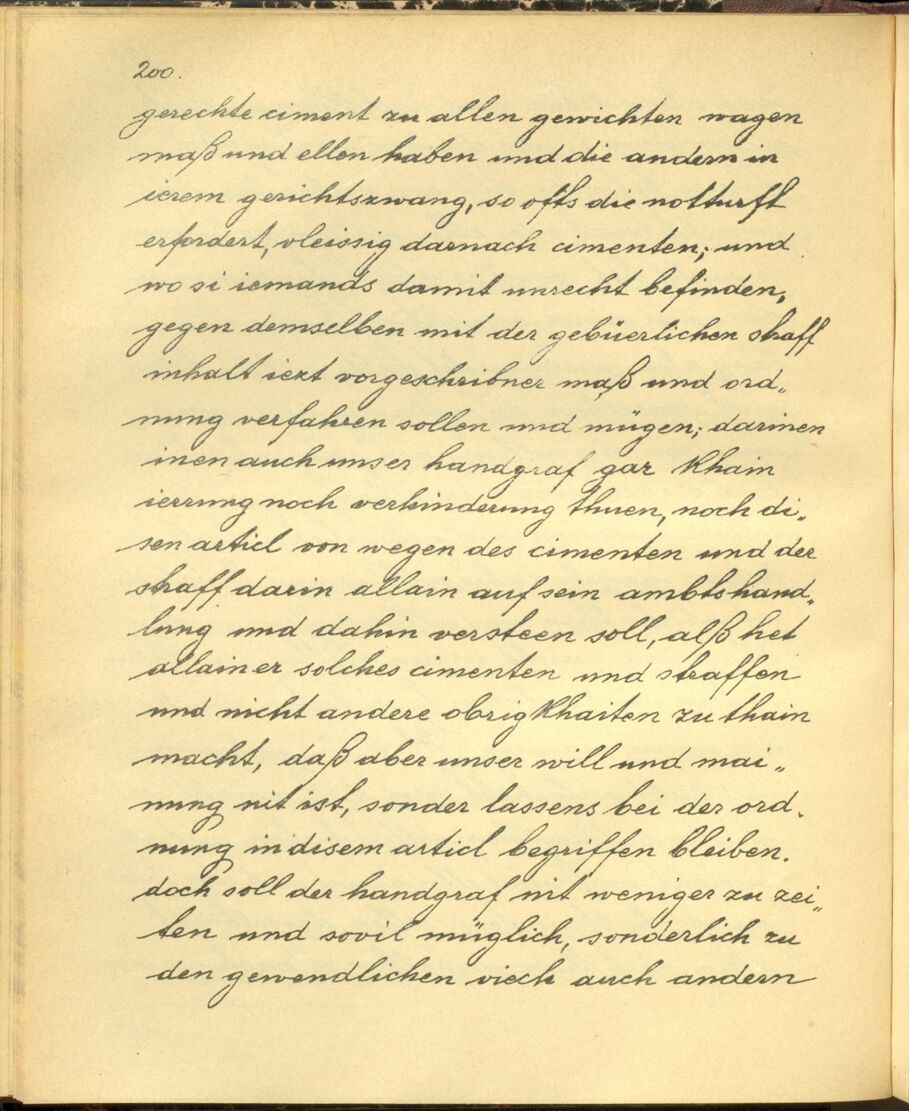 200.
gerechte ciment zu allen gewichten wagen
maß und ellen haben und die andern in
ierem gerichtszwang, so offts die notturft
erfordert, vleissig darnach cimenten; und
wo si iemands damit unrecht befinden,
gegen demselben mit der gebüerlichen straff
inhalt iezt vorgeschribner maß und ord„
nung verfahren sollen und mügen; darinen
inen auch unser handgraf gar khain
ierrung noch verhinderung thuen, noch di„
sen articl von wegen des cimenten und der
straff darin allain auf sein ambtshand„
lung und dahin versteen soll, alß het
allain er solches cimenten und straffen
und nicht andere obrigkhaiten zu thain
macht, daß aber unser will und mai„
nung nit ist, sonder lassens bei der ord„
nung in disem articl begriffen bleiben.
doch soll der handgraf nit weniger zu zei„
ten und sovil müglich, sonderlich zu
den gewendlichen viech auch andern